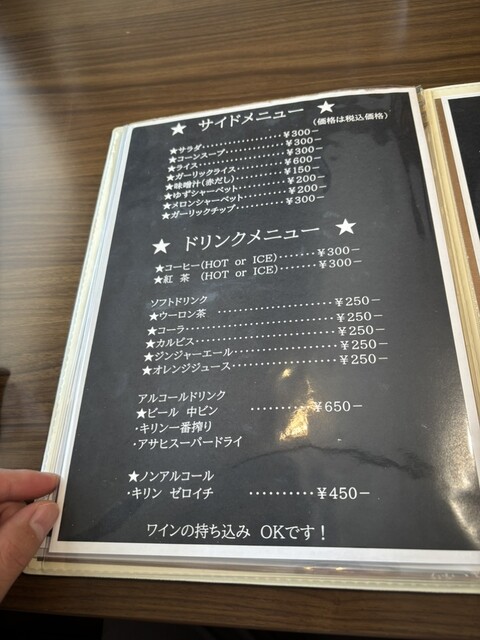 ★ サイドメニュー ★
(価格は税込価格)
★サラダ・・・・・・・・・・・・・・¥300−
★コーンスープ・・・・・・・・・・¥300−
★ライス・・・・・・・・・・・・・・¥300−
★ガーリックライス・・・・・・・・¥600−
★味噌汁(赤だし)・・・・・・・・¥150−
★ゆずシャーベット・・・・・・・・¥200−
★メロンシャーベット・・・・・・・¥200−
★ガーリックチップ・・・・・・・・¥300−
★ ドリンクメニュー ★
★コーヒー(HOT or ICE)・・・・・・・¥300−
★紅 茶 (HOT or ICE)・・・・・・・¥300−
ソフトドリンク
★ウーロン茶 ・・・・・・・・・・・・・・¥250−
★コーラ・・・・・・・・・・・・・・・・¥250−
★カルピス・・・・・・・・・・・・・・・¥250−
★ジンジャーエール・・・・・・・・・・・¥250−
★オレンジジュース・・・・・・・・・・・¥250−
アルコールドリンク
★ビール 中ビン ・・・・・・・・・・¥650−
・キリン一番搾り
・アサヒスーパードライ
★ノンアルコール
・キリン ゼロイチ ・・・・・・・・・・¥450−
ワインの持ち込み OKです!